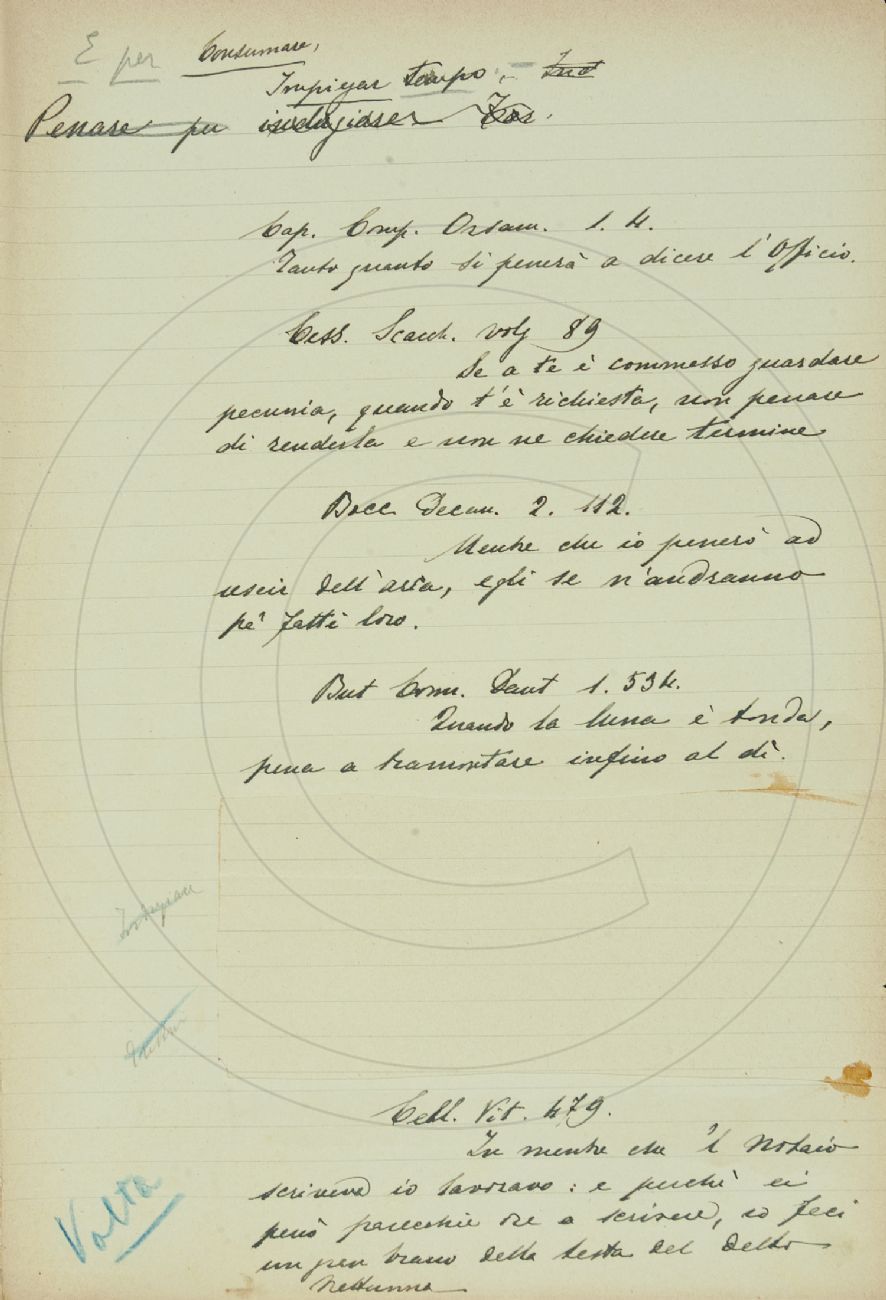 E per Consumare,
Impiegar tempo,
Penare per indugiare
Cap. Comp. Orsam. 1. 4.
Tanto quanto si penerà a dicere l'Officio.
Cess. Scacch. volg 89
Se a te è commesso guardare
pecunia, quando t'è richiesta, non penare
di renderla e non ne chiedere termine
Bocc Decam. 2. 112.
Mentre che io penerò ad
uscir dell'arca, egli se n'andranno
pe' fatti loro.
But Comm. Dant 1. 534.
Quando la luna è tonda,
pena a tramontare infino al dì.
Indugiare
Cell. Vit. 479.
In mentre che 'l Notaio
scriveva io lavoravo: e perchè ei
penò parecchie ore a scrivere, io feci
un pen brano della testa del detto
Nettunno
Volta